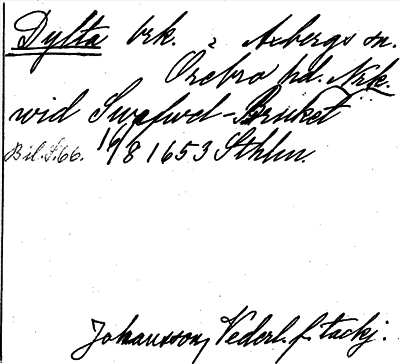 Dylta brk. i Axbergs sn.
Örebro hd. Nrk.
wid Swefwel-Bruket
Bil. S. 66. 16/8 1653 Sthlm.
Johansson, Vederl. f. tackj.